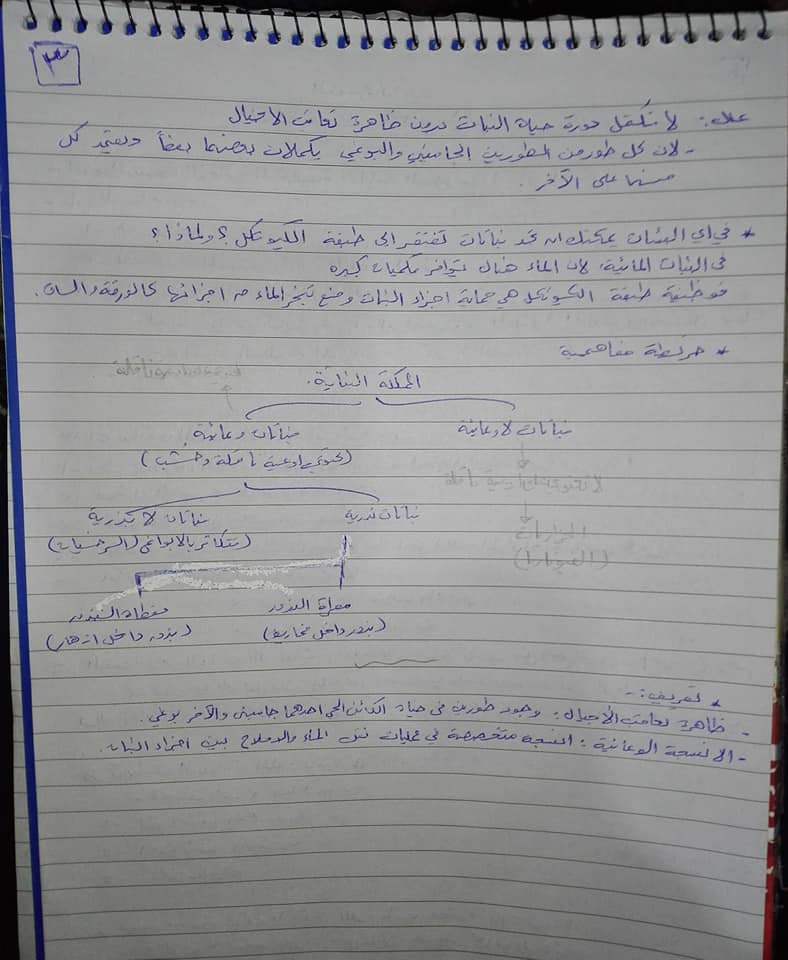 ٣
علل: لا تكتمل دورة حياة النبات بدون ظاهرة تعاقب الاجيال
- لان كل طور من الطورين الجاميتي والبوغي يكملان بعضهما بعضاً ويعتمد كل
منهما على الآخر.
* في اي البيئات يمكنك ان تجد نباتات تفتقر الى طبقة الكيوتكل؟ ولماذا؟
في البيئات المائية، لان الماء هناك يتوافر بكميات كبيره
فوظيفة طبقة الكيوتكل هي حماية اجزاء النبات ومنع تبخر الماء من اجزائها كالورقة والساق.
* خريطة مفاهيمية
المملكة النباتية.
نباتات لا وعائية
نباتات وعائية
(تحتوي اوعية ناقلة وخشب)
لا تحتوي على اوعية ناقلة
الحزازيات
(الفيوناريا)
نباتات بذرية
نباتات لا بذرية
(تتكاثر بالابواغ) (السرخسيات)
معراة البذور
(بذور داخل مخاريط)
مغطاة البذور
(بذور داخل ازهار)
* تعريف:-
- ظاهرة تعاقب الأجيال: وجود طورين في حياة الكائن الحي احدهما جاميتي والآخر بوغي.
- الانسجة الوعائية: انسجة متخصصة في عمليات نقل الماء والاملاح بين اجزاء النبات.